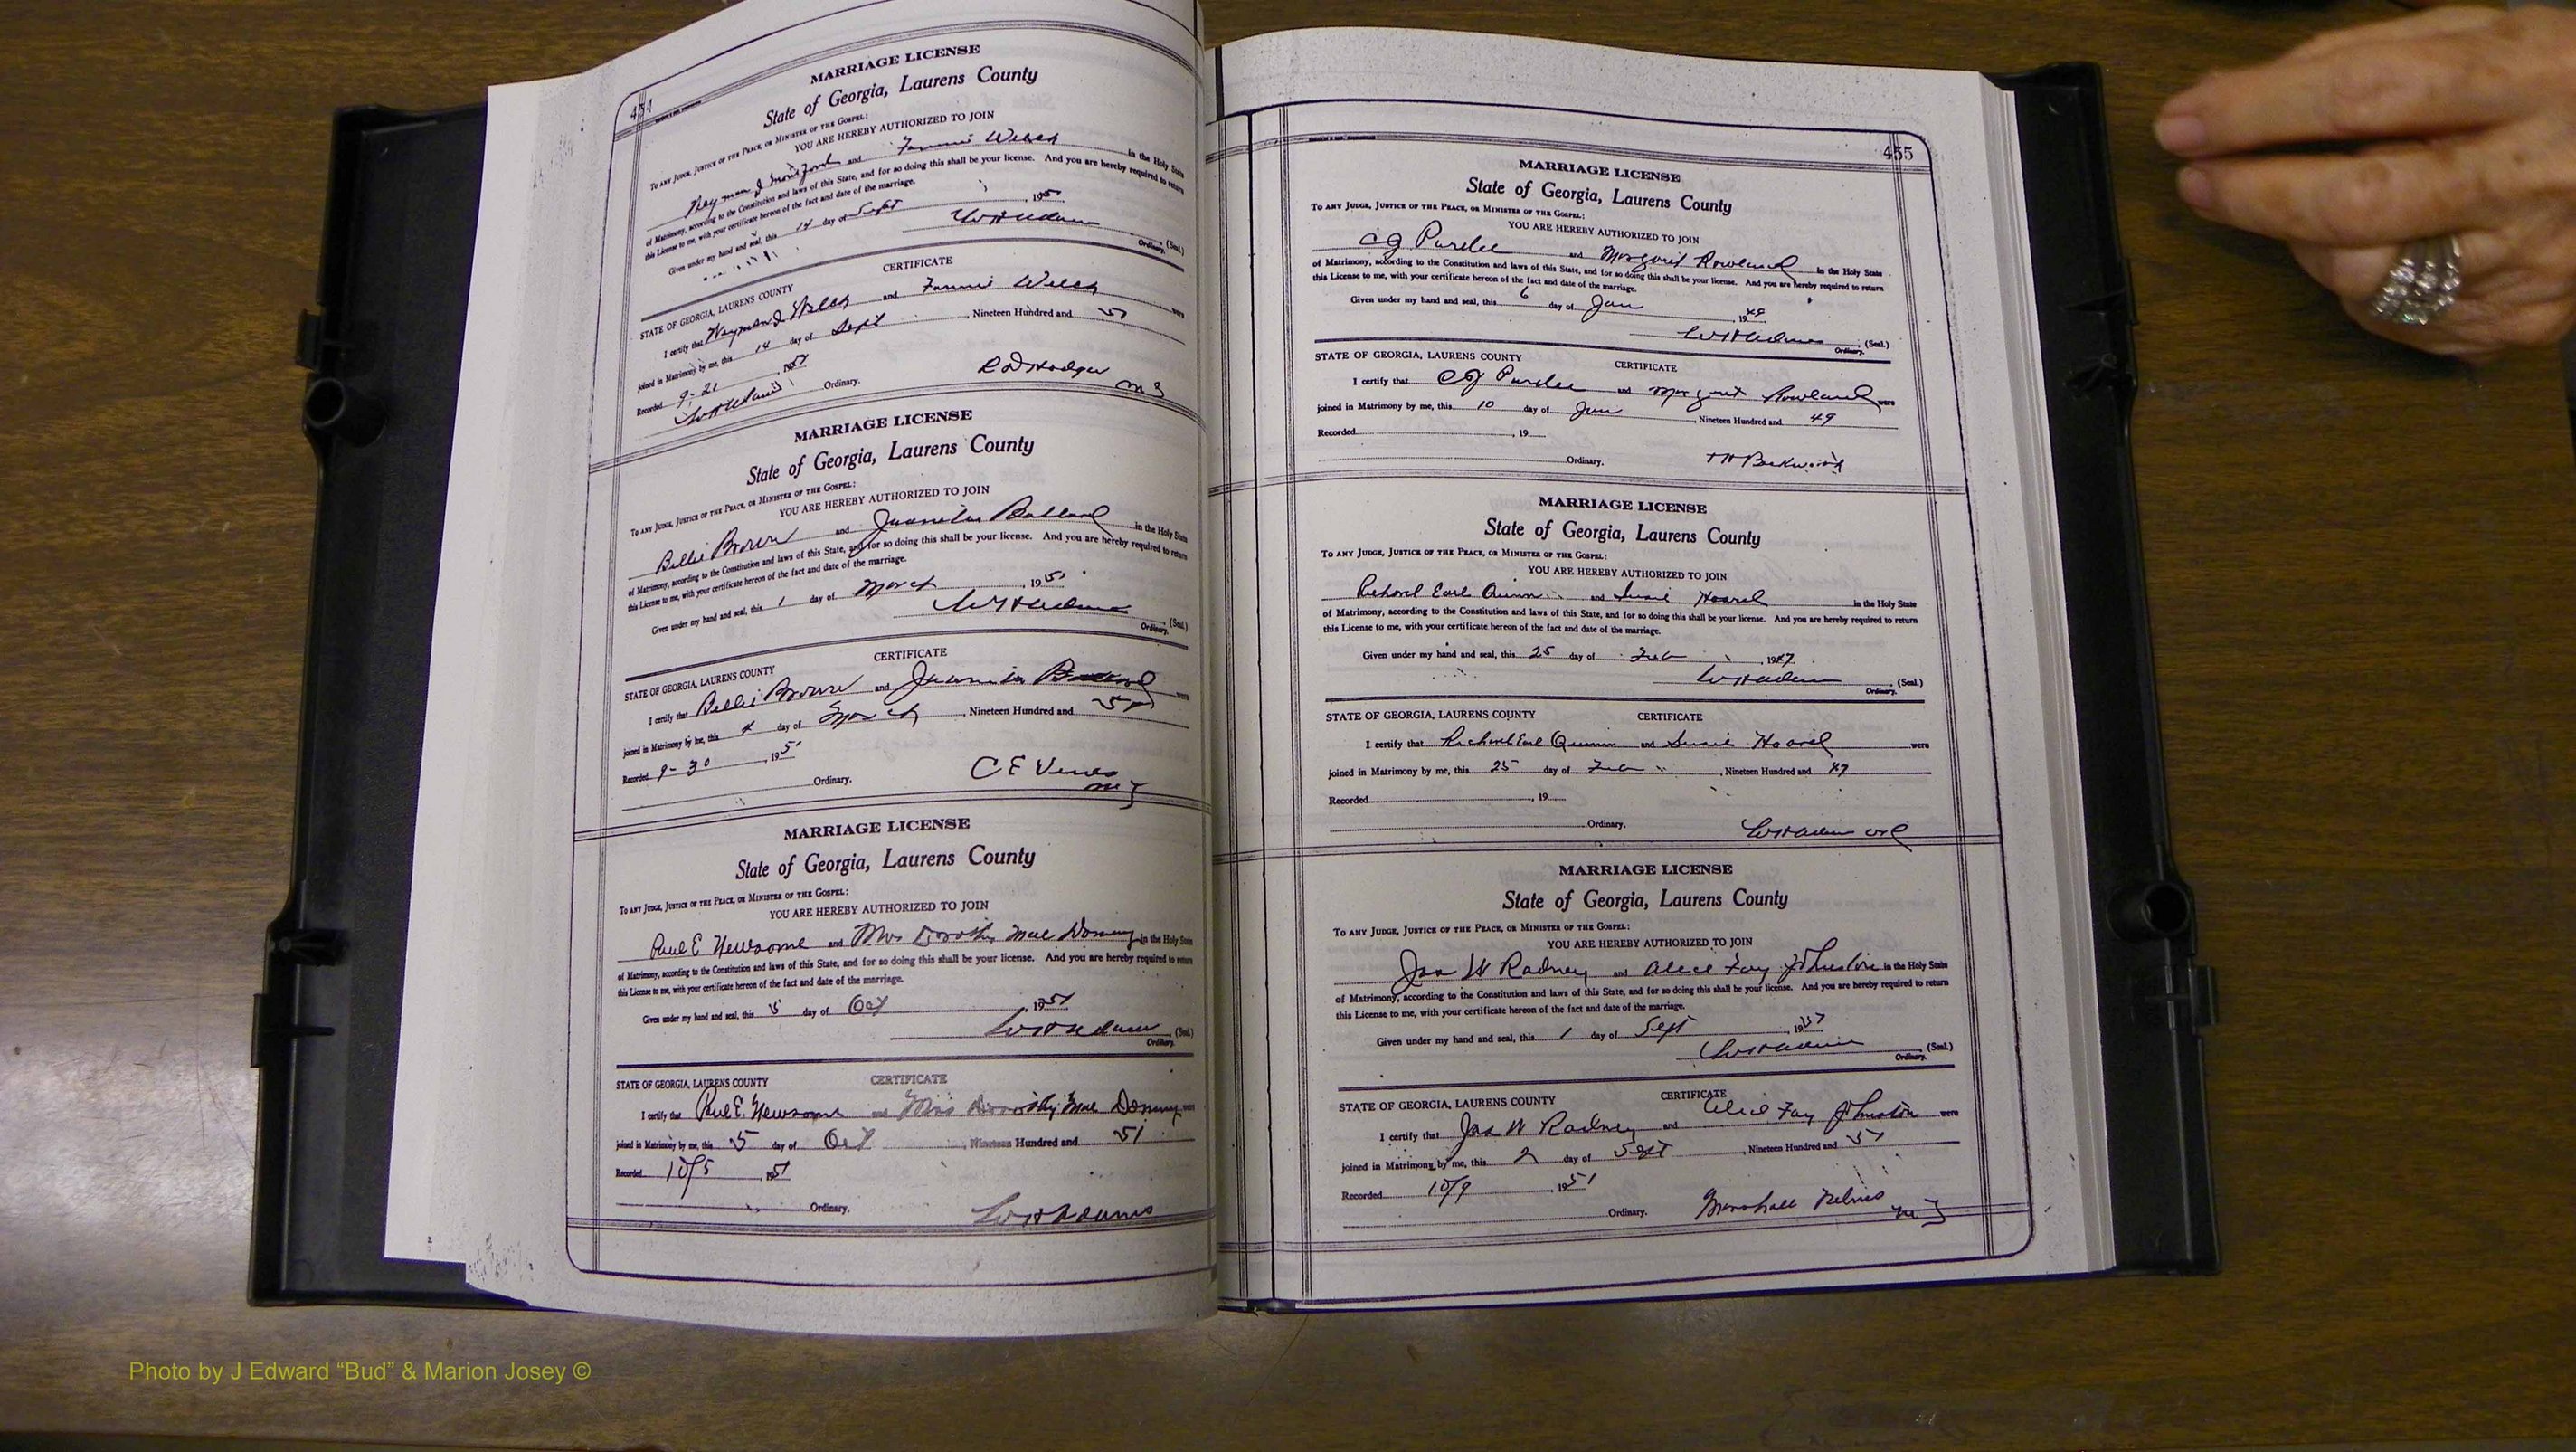 454
MARRIAGE LICENSE
State of Georgia, Laurens County
To any Judge, Justice of the Peace, or Minister of the Gospel:
YOU ARE HEREBY AUTHORIZED TO JOIN
and Fannie Welch in the Holy State
of Matrimony, according to the Constitution and laws of this State, and for so doing this shall be your license. And you are hereby required to return
this License to me, with your certificate hereon of the fact and date of the marriage.
Given under my hand and seal, this 14 day of Sept, 1951
WH Adams (Seal.)
Ordinary.
CERTIFICATE
STATE OF GEORGIA, LAURENS COUNTY
I certify that Weyman J Welch and Fannie Welch were
joined in Matrimony by me, this 14 day of Sept, Nineteen Hundred and 51
Recorded 9-21, 1951
WH Adams Ordinary. R D Hodges MG
MARRIAGE LICENSE
State of Georgia, Laurens County
To any Judge, Justice of the Peace, or Minister of the Gospel:
YOU ARE HEREBY AUTHORIZED TO JOIN
Billie Brown and Juanita Ballard in the Holy State
of Matrimony, according to the Constitution and laws of this State, and for so doing this shall be your license. And you are hereby required to return
this License to me, with your certificate hereon of the fact and date of the marriage.
Given under my hand and seal, this 1 day of March, 1951
WH Adams (Seal.)
Ordinary.
CERTIFICATE
STATE OF GEORGIA, LAURENS COUNTY
I certify that Billie Brown and Juanita Ballard were
joined in Matrimony by me, this 4 day of March, Nineteen Hundred and 51
Recorded 9-30, 195
Ordinary. C E Vines
MG
MARRIAGE LICENSE
State of Georgia, Laurens County
To any Judge, Justice of the Peace, or Minister of the Gospel:
YOU ARE HEREBY AUTHORIZED TO JOIN
Paul E Newsome and Mrs Dorothy Mae Dominy in the Holy State
of Matrimony, according to the Constitution and laws of this State, and for so doing this shall be your license. And you are hereby required to return
this License to me, with your certificate hereon of the fact and date of the marriage.
Given under my hand and seal, this 5 day of Oct, 1951
WH Adams (Seal.)
Ordinary.
CERTIFICATE
STATE OF GEORGIA, LAURENS COUNTY
I certify that Paul E. Newsome and Mrs Dorothy Mae Dominy were
joined in Matrimony by me, this 5 day of Oct, Nineteen Hundred and 51
Recorded 10/5, 1951
Ordinary. WH Adams
455
MARRIAGE LICENSE
State of Georgia, Laurens County
To any Judge, Justice of the Peace, or Minister of the Gospel:
YOU ARE HEREBY AUTHORIZED TO JOIN
CJ Purdee and Margret Rowland in the Holy State
of Matrimony, according to the Constitution and laws of this State, and for so doing this shall be your license. And you are hereby required to return
this License to me, with your certificate hereon of the fact and date of the marriage.
Given under my hand and seal, this 6 day of Jan, 1949
WH Adams (Seal.)
Ordinary.
CERTIFICATE
STATE OF GEORGIA, LAURENS COUNTY
I certify that CJ Purdee and Margret Rowland were
joined in Matrimony by me, this 10 day of Jan, Nineteen Hundred and 49
Recorded, 19
Ordinary.
MARRIAGE LICENSE
State of Georgia, Laurens County
To any Judge, Justice of the Peace, or Minister of the Gospel:
YOU ARE HEREBY AUTHORIZED TO JOIN
Richard Earl Quinn and Susie Hoard in the Holy State
of Matrimony, according to the Constitution and laws of this State, and for so doing this shall be your license. And you are hereby required to return
this License to me, with your certificate hereon of the fact and date of the marriage.
Given under my hand and seal, this 25 day of Feb, 1947
WH Adams (Seal.)
Ordinary.
STATE OF GEORGIA, LAURENS COUNTY CERTIFICATE
I certify that Richard Earl Quinn and Susie Hoard were
joined in Matrimony by me, this 25 day of Feb, Nineteen Hundred and 47
Recorded, 19
Ordinary. WH Adams Ord
MARRIAGE LICENSE
State of Georgia, Laurens County
To any Judge, Justice of the Peace, or Minister of the Gospel:
YOU ARE HEREBY AUTHORIZED TO JOIN
Jas W Radney and Alice Fay Johnston in the Holy State
of Matrimony, according to the Constitution and laws of this State, and for so doing this shall be your license. And you are hereby required to return
this License to me, with your certificate hereon of the fact and date of the marriage.
Given under my hand and seal, this 1 day of Sept, 1951
WH Adams (Seal.)
Ordinary.
CERTIFICATE
STATE OF GEORGIA, LAURENS COUNTY
I certify that Jas W Radney and Alice Fay Johnston were
joined in Matrimony by me, this 2 day of Sept, Nineteen Hundred and 51
Recorded 10/9, 1951
Ordinary. Marshall Nelms MG
Photo by J Edward “Bud” & Marion Josey ©